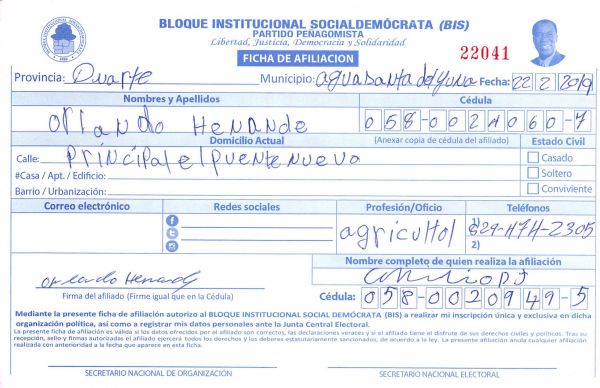 BLOQUE INSTITUCIONAL SOCIALDEMÓCRATA (BIS)
PARTIDO PEÑAGOMISTA
Libertad, Justicia, Democracia y Solidaridad
FICHA DE AFILIACION
22041
Provincia: Duarte Municipio: aguasanta del yuna Fecha: 22 2 2019
Nombres y Apellidos Cédula
orlando Henande 058-0024060-7
Domicilio Actual (Anexar copia de cédula del afiliado) Estado Civil
Calle: Principal el puente nuevo Casado
#Casa / Apt. / Edificio: Soltero
Barrio / Urbanización: Conviviente
Correo electrónico Redes sociales Profesión/Oficio Teléfonos
agricultol 1) 829-474-2305
2)
Nombre completo de quien realiza la afiliación
orlando Henande
Firma del afiliado (Firme igual que en la Cédula) Cédula: 058-0020949-5
Mediante la presente ficha de afiliación autorizo al BLOQUE INSTITUCIONAL SOCIAL DEMÓCRATA (BIS) a realizar mi inscripción única y exclusiva en dicha
organización política, así como a registrar mis datos personales ante la Junta Central Electoral.
La presente ficha de afiliación es válida si los datos ofrecidos por el afiliado son correctos, las declaraciones veraces y si el titular tiene el disfrute de sus derechos civiles y políticos. Tras su
recepción, sello y firmas autorizadas el afiliado ejercerá todos los derechos y los deberes estatutariamente sancionados, de acuerdo a la ley. La presente afiliación anula cualquier afiliación
realizada con anterioridad a la fecha que aparece en esta ficha.
SECRETARIO NACIONAL DE ORGANIZACIÓN SECRETARIO NACIONAL ELECTORAL